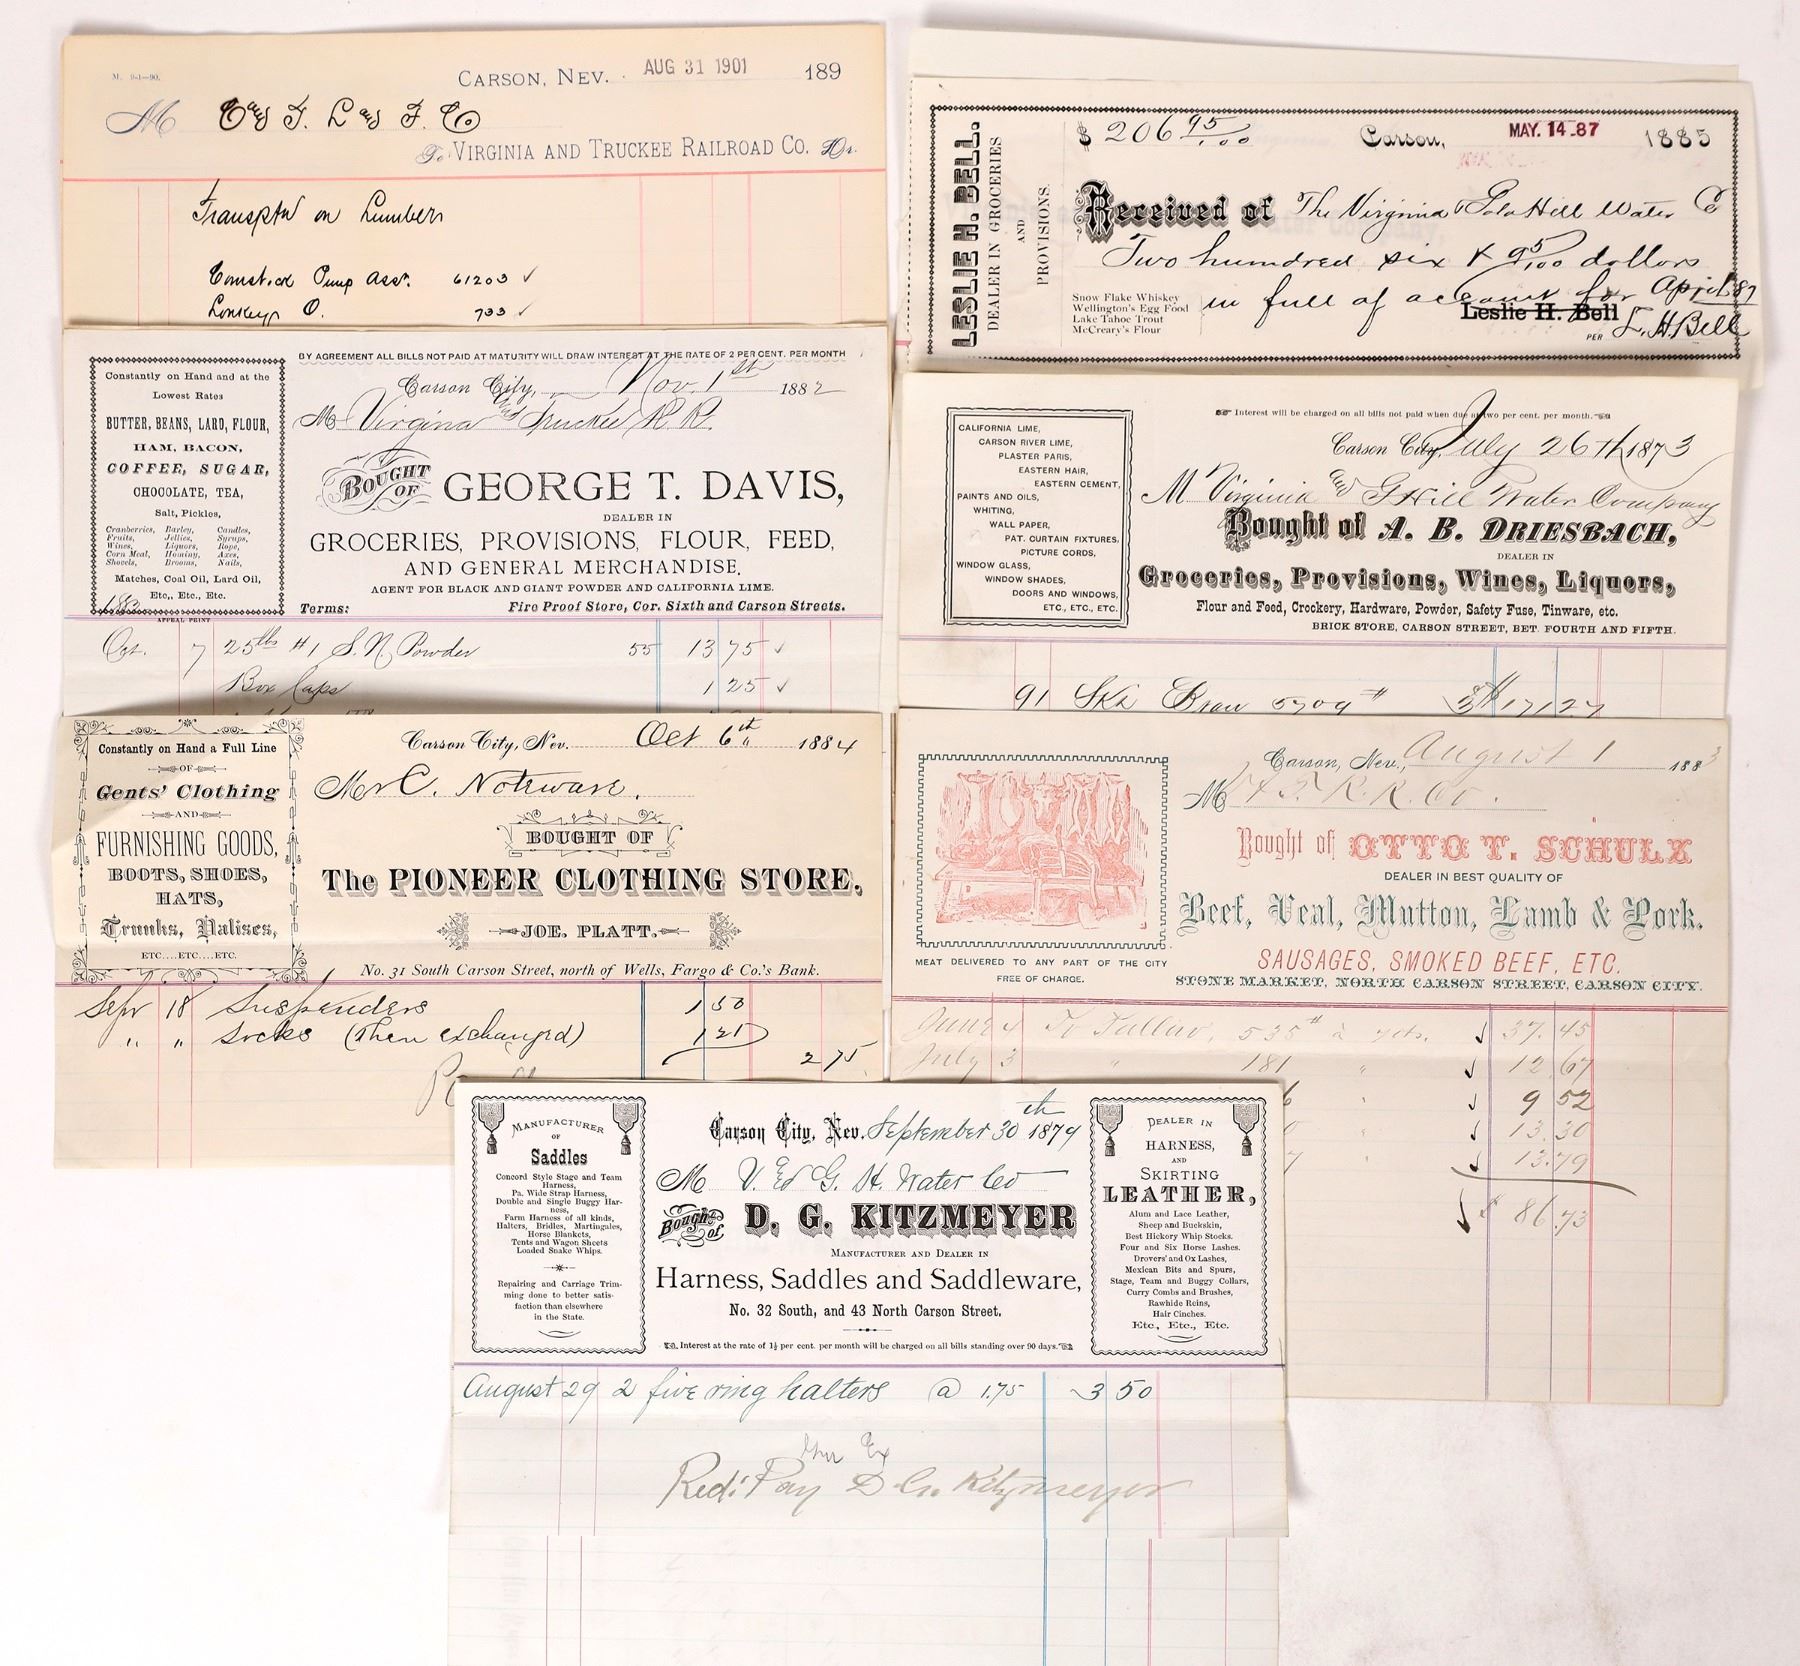 M. 9-1-90.
CARSON, NEV. AUG 31 1901 189
M C and T. L and F. Co
To VIRGINIA AND TRUCKEE RAILROAD CO. Dr.
Transptn on Lumber
Comstock Pump Assn. 61203 ✓
Lonkey O. 733 ✓
LESLIE H. BELL.
DEALER IN GROCERIES
AND
PROVISIONS.
$ 206 95/100 Carson, MAY. 14.87 1885
Received of The Virginia & Gold Hill Water Co
Two hundred six & 95/100 dollars
in full of account for April 87
Snow Flake Whiskey
Wellington's Egg Food
Lake Tahoe Trout
McCreary's Flour
Leslie H. Bell
PER L. H. Bell
BY AGREEMENT ALL BILLS NOT PAID AT MATURITY WILL DRAW INTEREST AT THE RATE OF 2 PER CENT. PER MONTH
Carson City, Nov. 1st 1882
M Virginia and Truckee R R.
BOUGHT OF GEORGE T. DAVIS,
DEALER IN
GROCERIES, PROVISIONS, FLOUR, FEED,
AND GENERAL MERCHANDISE,
AGENT FOR BLACK AND GIANT POWDER AND CALIFORNIA LIME.
Terms: Fire Proof Store, Cor. Sixth and Carson Streets.
Constantly on Hand and at the
Lowest Rates
BUTTER, BEANS, LARD, FLOUR,
HAM, BACON,
COFFEE, SUGAR,
CHOCOLATE, TEA,
Salt, Pickles,
Cranberries, Barley, Candles,
Fruits, Jellies, Syrups,
Wines, Liquors, Rope,
Corn Meal, Hominy, Axes,
Shovels, Brooms, Nails,
Matches, Coal Oil, Lard Oil,
Etc., Etc., Etc.
1882
APPEAL PRINT
Oct. 7 25 lbs #1 S. N. Powder 55 13 75 ✓
Box Caps 1 25 ✓
Interest will be charged on all bills not paid when due at two per cent. per month.
Carson City, July 26th 1873
M Virginia and G Hill Water Company
Bought of A. B. DRIESBACH,
DEALER IN
Groceries, Provisions, Wines, Liquors,
Flour and Feed, Crockery, Hardware, Powder, Safety Fuse, Tinware, etc.
BRICK STORE, CARSON STREET, BET. FOURTH AND FIFTH.
CALIFORNIA LIME,
CARSON RIVER LIME,
PLASTER PARIS,
EASTERN HAIR,
EASTERN CEMENT,
PAINTS AND OILS,
WHITING,
WALL PAPER,
PAT. CURTAIN FIXTURES,
PICTURE CORDS,
WINDOW GLASS,
WINDOW SHADES,
DOORS AND WINDOWS,
ETC., ETC., ETC.
91 Sks Bran 5709 # 3 171 27
Constantly on Hand a Full Line
OF
Gents' Clothing
AND
FURNISHING GOODS,
BOOTS, SHOES,
HATS,
Trunks, Valises,
ETC....ETC....ETC.
Carson City, Nev. Oct 6th 1884
Mr C. Noteware.
BOUGHT OF
The PIONEER CLOTHING STORE.
JOE. PLATT.
No. 31 South Carson Street, north of Wells, Fargo & Co.'s Bank.
Sept 18 Suspenders 1 50
" " Socks (then exchanged) 1 25
2 75
Carson, Nev., August 1 1883
M V & T. R. R. Co.
Bought of OTTO T. SCHULZ
DEALER IN BEST QUALITY OF
Beef, Veal, Mutton, Lamb & Pork.
SAUSAGES, SMOKED BEEF, ETC.
STONE MARKET, NORTH CARSON STREET, CARSON CITY.
MEAT DELIVERED TO ANY PART OF THE CITY
FREE OF CHARGE.
June 4 To Tallow, 535 # à 7 cts. ✓ 37.45
July 3 " 181 " ✓ 12.67
✓ 9 52
✓ 13.30
✓ 13.79
✓ $ 86.73
MANUFACTURER
OF
Saddles
Concord Style Stage and Team
Harness,
Pa. Wide Strap Harness,
Double and Single Buggy Har-
ness,
Farm Harness of all kinds,
Halters, Bridles, Martingales,
Horse Blankets,
Tents and Wagon Sheets
Loaded Snake Whips.
Repairing and Carriage Trim-
ming done to better satis-
faction than elsewhere
in the State.
Carson City, Nev. September 30th 1879
M V. and G. H. Water Co
Bought of D. G. KITZMEYER
MANUFACTURER AND DEALER IN
Harness, Saddles and Saddleware,
No. 32 South, and 43 North Carson Street.
Interest at the rate of 1½ per cent. per month will be charged on all bills standing over 90 days.
DEALER IN
HARNESS,
AND
SKIRTING
LEATHER,
Alum and Lace Leather,
Sheep and Buckskin,
Best Hickory Whip Stocks.
Four and Six Horse Lashes.
Drovers' and Ox Lashes,
Mexican Bits and Spurs,
Stage, Team and Buggy Collars,
Curry Combs and Brushes,
Rawhide Reins,
Hair Cinches.
Etc., Etc., Etc.
August 29 2 five ring halters @ 1.75 3 50
Recd. Pay D. G. Kitzmeyer